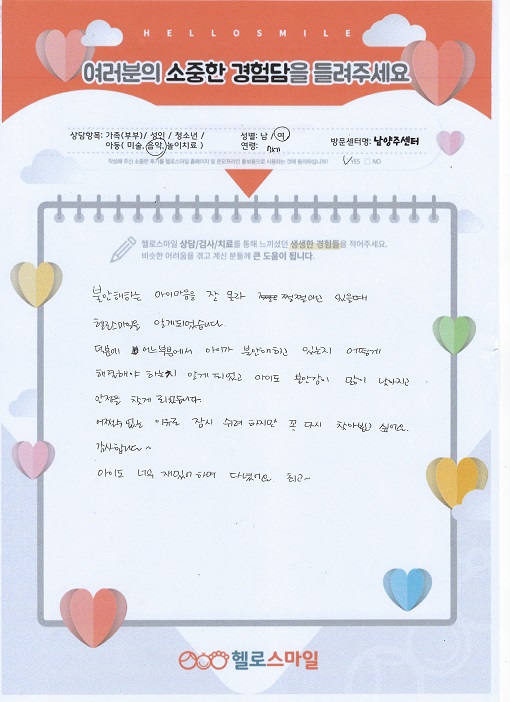 HELLOSMILE
여러분의 소중한 경험담을 들려주세요
상담항목: 가족(부부)/ 성인 / 청소년 /
아동( 미술, 음악, 놀이치료 )
성별: 남 / 여
연령:
방문센터명: 남양주센터
작성해 주신 소중한 후기를 헬로스마일 홈페이지 및 온오프라인 홍보용으로 사용하는 것에 동의하십니까? ✓YES □ NO
헬로스마일 상담/검사/치료를 통해 느끼셨던 생생한 경험들을 적어주세요.
비슷한 어려움을 겪고 계신 분들께 큰 도움이 됩니다.
불안해하는 아이마음을 잘 몰라 쩔쩔매고 있을때
헬로스마일을 알게되었습니다.
덕분에 어느부분에서 아이가 불안해하고 있는지 어떻게
해결해야 하는지 알게 되었고 아이도 불안감이 많이 낮아지고
안정을 찾게 되었습니다.
어쩔수 없는 이유로 잠시 쉬려 하지만 꼭 다시 찾아뵙고 싶어요.
감사합니다~
아이도 너무 재밌어 하며 다녔어요 최고~
헬로스마일